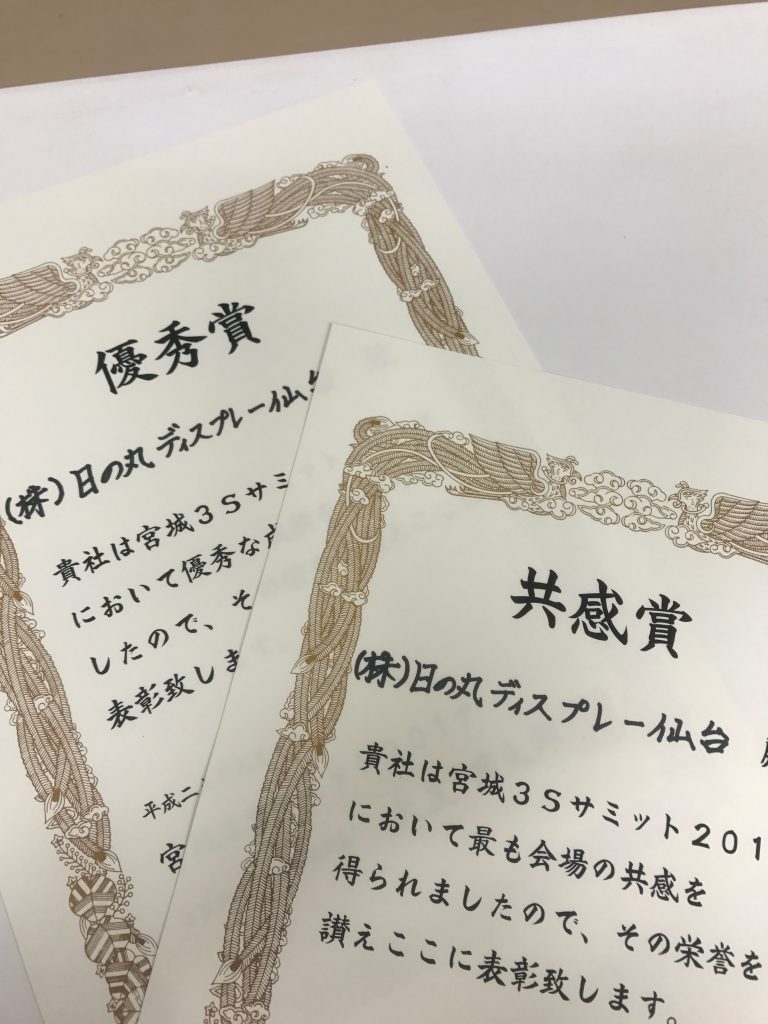 優秀賞
(株)日の丸ディスプレー仙台
貴社は宮城３Ｓサミ
において優秀な成
したので、そ
表彰致しま
平成二
宮
共感賞
(株)日の丸ディスプレー仙台
貴社は宮城３Ｓサミット２０１
において最も会場の共感を
得られましたので、その栄誉を
讃えここに表彰致します。